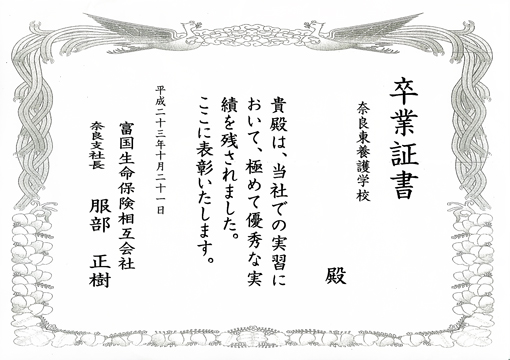 卒業証書
奈良東養護学校
殿
貴殿は、当社での実習に
おいて、極めて優秀な実
績を残されました。
ここに表彰いたします。
平成二十三年十月二十一日
富国生命保険相互会社
奈良支社長 服部 正樹